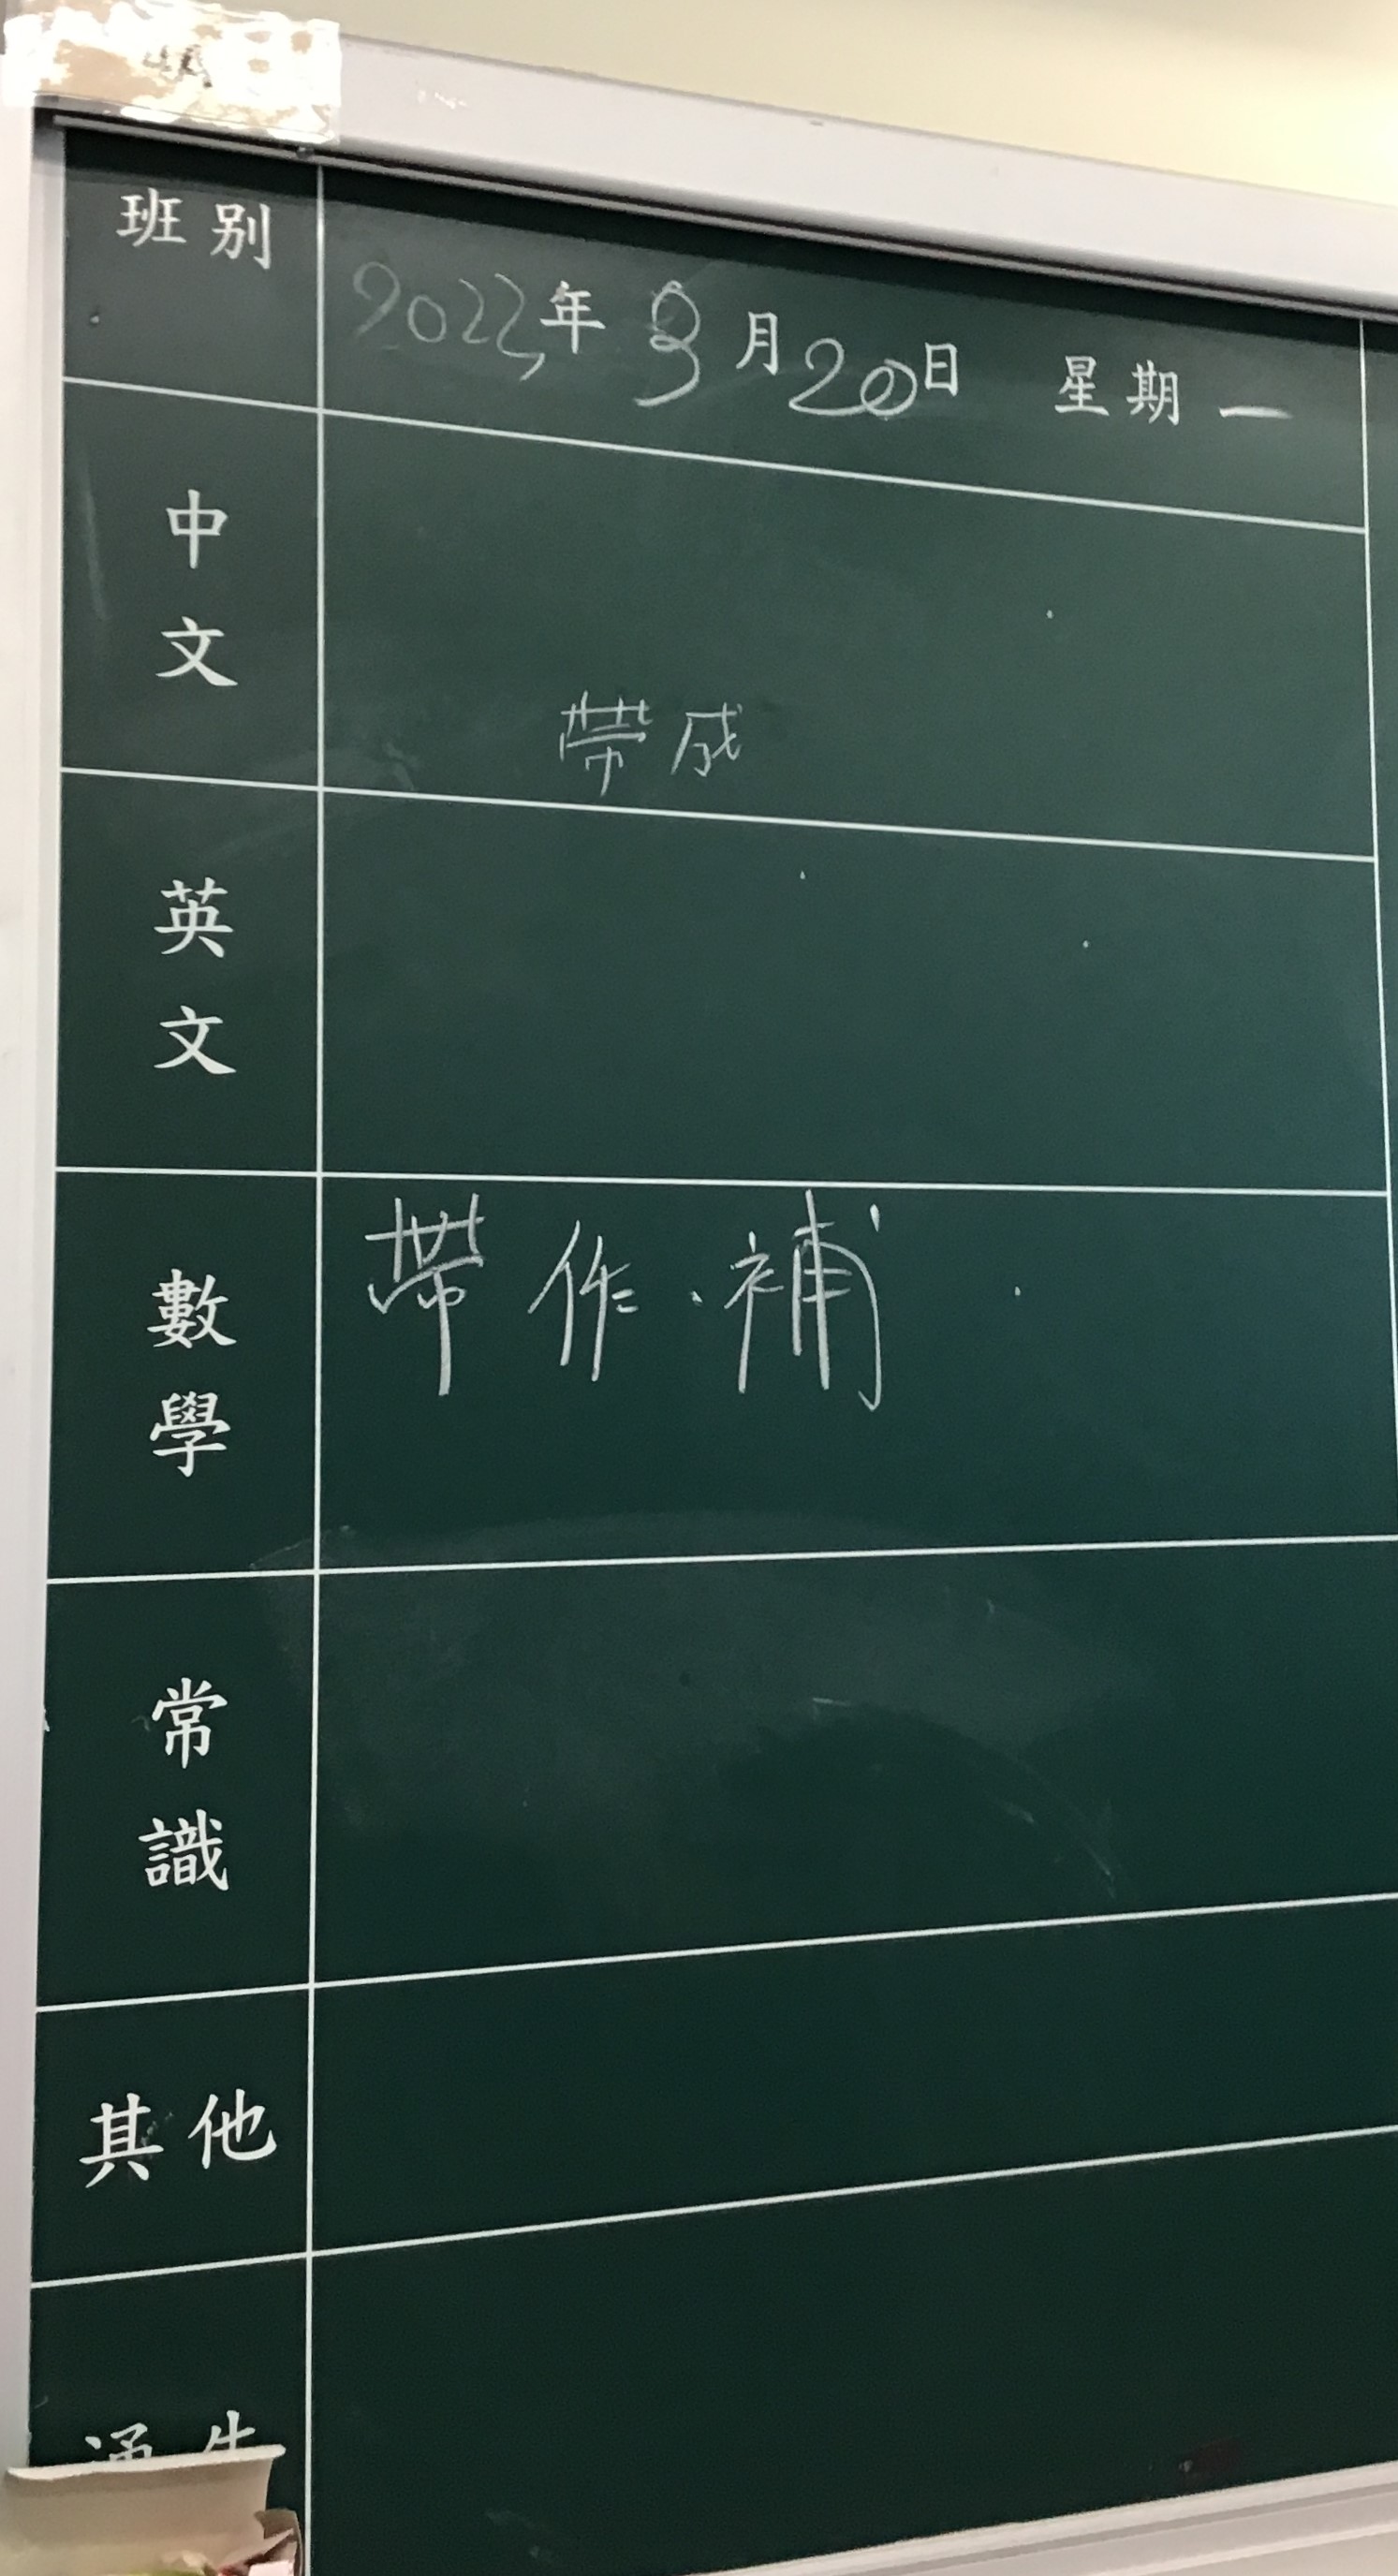 班別
2023年 3月20日 星期一
中文
帶成
英文
數學
帶作、補
常識
其他
通告